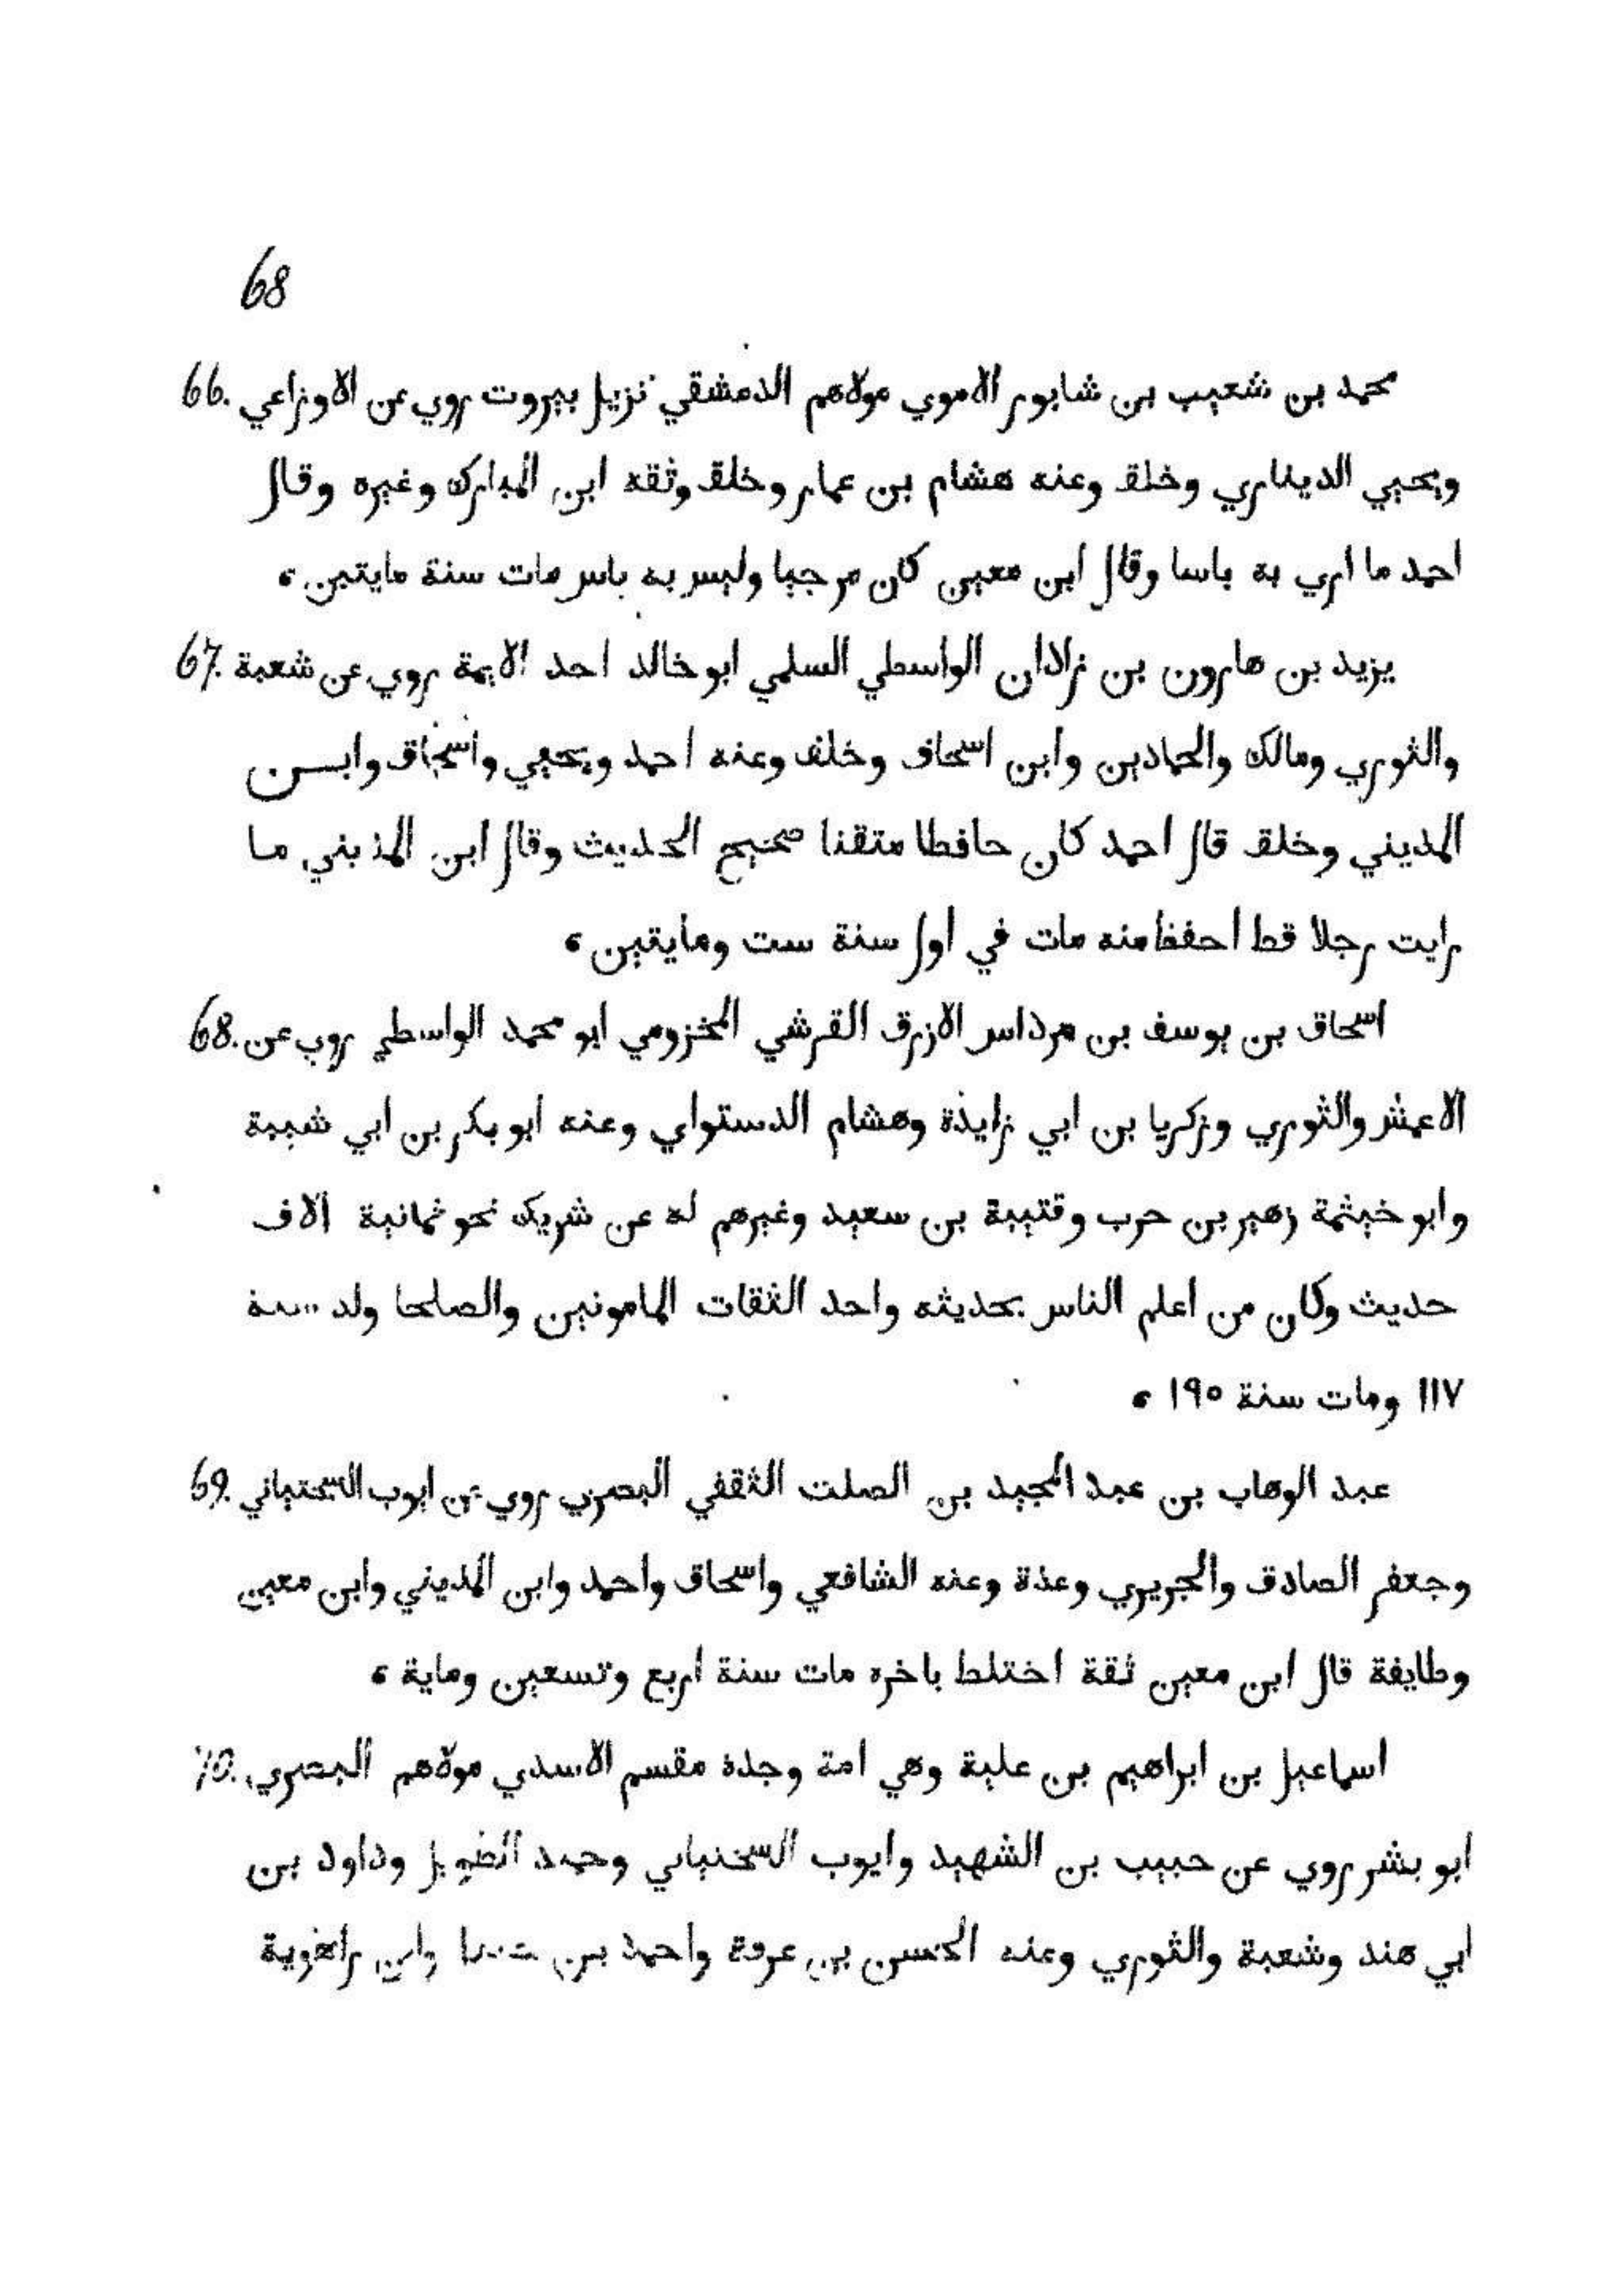 68
محمد بن شعيب بن شابور الاموي مولاهم الدمشقي نزيل بيروت روي عن الاوزاعي .66
ويحيي الديناري وخلق وعنه هشام بن عمار وخلق وثقه ابن المبارك وغيره وقال
احمد ما اري به باسا وقال ابن معين كان مرجيا وليس به باس مات سنة مايتين ،
يزيد بن هارون بن زاذان الواسطي السلمي ابو خالد احد الايمة روي عن شعبة .67
والثوري ومالك والحمادين وابن اسحاق وخلف وعنه احمد ويحيي واسحاق وابـــن
المديني وخلق قال احمد كان حافطا متقنا صحيح الحديث وقال ابن المديني ما
رايت رجلا قط احفظ منه مات في اول سنة ست ومايتين ،
اسحاق بن يوسف بن مرداس الازرق القرشي المخزومي ابو محمد الواسطي روي عن .68
الاعمش والثوري وزكريا بن ابي زايدة وهشام الدستواي وعنه ابو بكر بن ابي شيبة
وابو خيثمة زهير بن حرب وقتيبة بن سعيد وغيرهم له عن شريك نحو ثمانية الاف
حديث وكان من اعلم الناس بحديثه واحد الثقات المامونين والصلحا ولد سنة
١١٧ ومات سنة ١٩٥ ،
عبد الوهاب بن عبد المجيد بن الصلت الثقفي البصري روي عن ايوب السختياني .69
وجعفر الصادق والجريري وعدة وعنه الشافعي واسحاق واحمد وابن المديني وابن معين
وطايفة قال ابن معين ثقة اختلط باخره مات سنة اربع وتسعين وماية ،
اسماعيل بن ابراهيم بن علية وهي امة وجدة مقسم الاسدي مولاهم البصري .70
ابو بشر روي عن حبيب بن الشهيد وايوب السختياني وحميد الطويل وداود بن
ابي هند وشعبة والثوري وعنه الحسن بن عرفة واحمد بن وابن راهوية